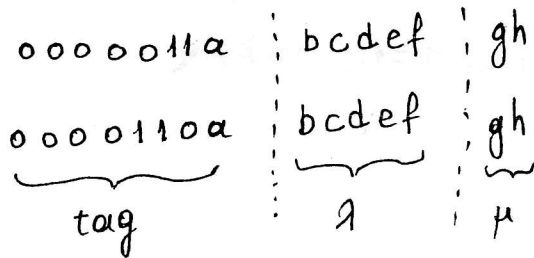 0 0 0 0 0 1 1 a bcdef gh
0 0 0 0 1 1 0 a bcdef gh
tag λ μ